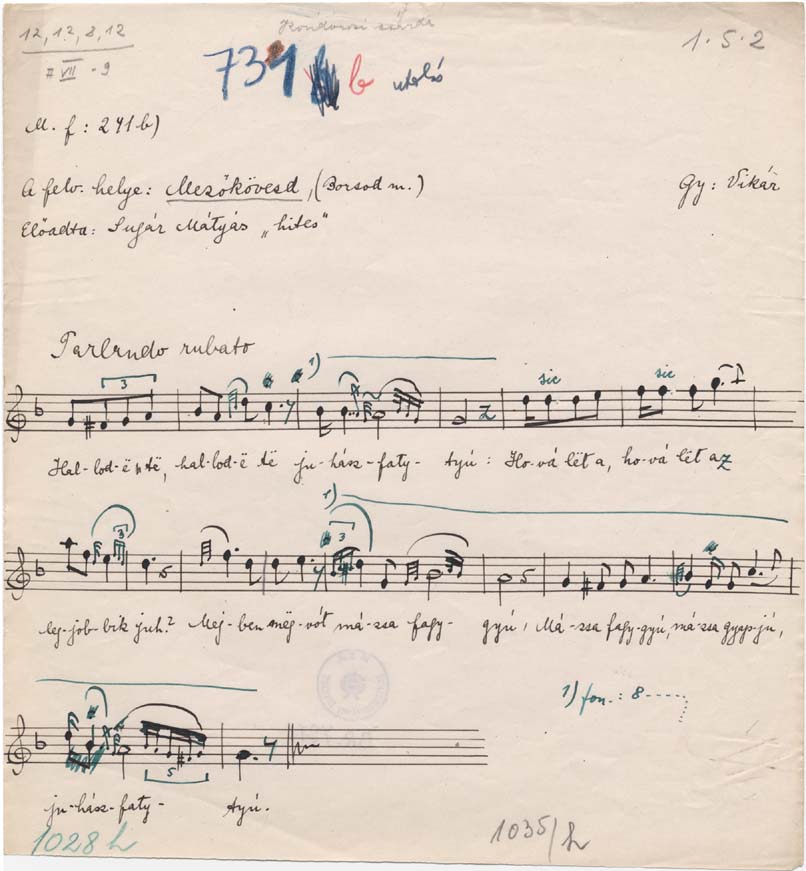 12, 12, 8, 12
VII - 9
1·5·2
731 b utolsó
M. f: 241 b)
A felv. helye: Mezőkövesd, (Borsod m.)
Gy: Vikár
Előadta: Sugár Mátyás „hites"
Parlando rubato
3
1)
sic
sic
Hal-lod-ë të, hal-lod-ë të ju-hász-faty- tyú: Ho-vá lët a, ho-vá lët az
3
1)
3
leg-job-bik juh? Mej-ben mëg-vót má-zsa fagy- gyú, Má-zsa fagy-gyú, má-zsa gyap-jú,
1) fon.: 8
5
ju-hász-faty- tyú.
1028 h
1035/h